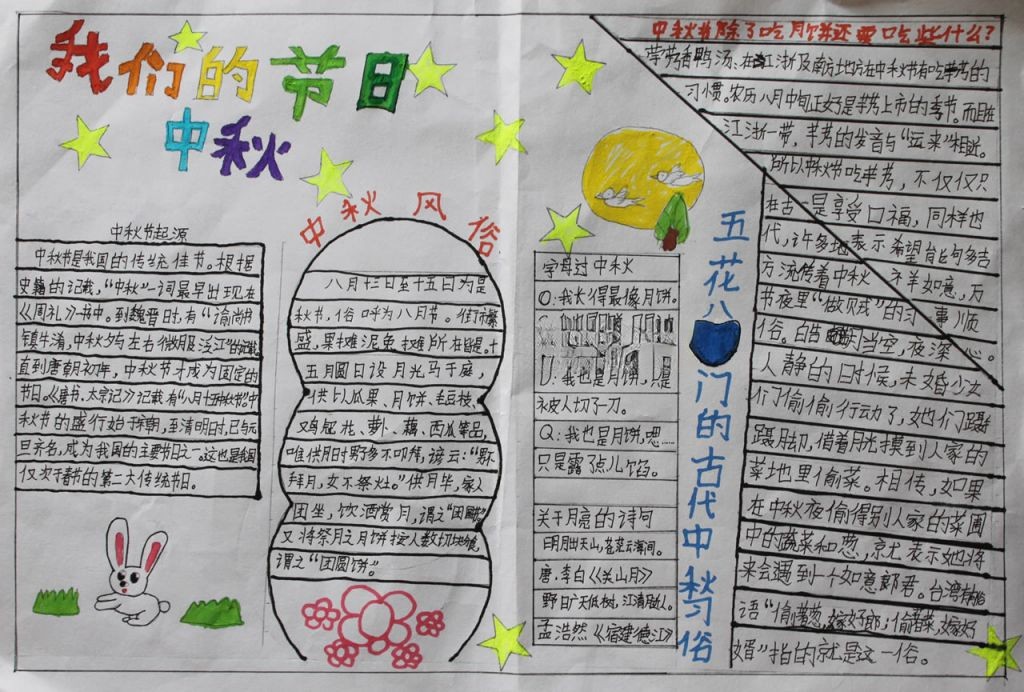 我们的节日
中秋
中秋节起源
中秋节是我国的传统佳节。根据
史籍的记载，“中秋”一词最早出现在
《周礼》一书中。到魏晋时，有“谕尚书
镇牛渚，中秋夕与左右微服泛江”的记载
直到唐朝初年，中秋节才成为固定的
节日。《唐书·太宗记》记载有“八月十五中秋节”中
秋节的盛行始于宋朝，至清明时，已与元
旦齐名，成为我国的主要节日之一。这也是我国
仅次于春节的第二大传统节日。
中秋风俗
八月十三日至十五日为是
秋节，俗呼为八月节。
盛，果摊泥兔摊所在皆是。十
五月圆日设月光马于庭，
供以瓜果、月饼、毛豆枝、
鸡冠花、萝卜、藕、西瓜等品，
唯供月时男多不叩拜，谚云：“男不
拜月，女不祭灶。”供月毕，家人
团坐，饮酒赏月，谓之“团圆”
又将祭月之月饼按人数切块
谓之“团圆饼”。
字母过中秋
O：我长得最像月饼。
U：我也是月饼，只是
被人切了一刀。
Q：我也是月饼，嗯……
只是露了点儿馅。
关于月亮的诗词
明月出天山，苍茫云海间。
唐·李白《关山月》
野旷天低树，江清月近人。
孟浩然《宿建德江》
五花八门的古代中秋习俗
中秋节除了吃月饼还要吃些什么？
芋艿香鸭汤：在江浙及南方地方在中秋节有吃芋艿的
习惯。农历八月中旬正好是芋艿上市的季节。而且
江浙一带，芋艿的发音与“运来”相近。
所以中秋节吃芋艿，不仅仅只
是享受口福，同样也
表示希望能够多吉
祥如意，万
事顺
心。
在古
代，许多地
方流传着中秋
节夜里“做贼”的习
俗。皓月当空，夜深
人静的时候，未婚少女
们偷偷行动了，她们蹑
蹑脚，借着月光摸到人家的
菜地里偷菜。相传，如果
在中秋夜偷得别人家的菜圃
中的蔬菜和葱，就表示她将
来会遇到一个如意郎君。台湾有俗
语“偷着葱，嫁好郎；偷着菜，嫁好
婿”指的就是这一俗。